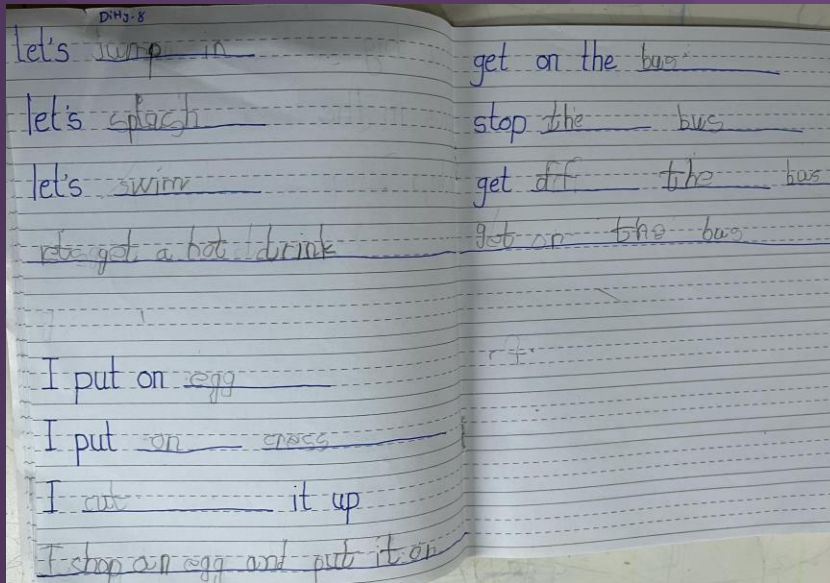 DiHg-8
let's jump in
let's splash
let's swim
get a hot drink
I put on egg
I put on cress
I cut it up
I shop an egg and put it on
get on the bus
stop the bus
get off the bus
got on the bus